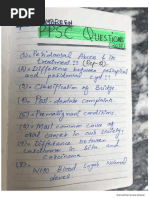 GREEN
PPSC Questions
(1). Periodontal Abscess & its
treatment?? (Rep-8).
(2). Difference between periapical
and periodontal cyst??
(3). Classification of Bridge
(4). Post-denture complaint
(5). Premalignant Conditions
(6). Most common cause of
oral cancer in our society.
(7). Difference between
Carcinoma &
Carcinoma.
Blood Sugar Normal
level